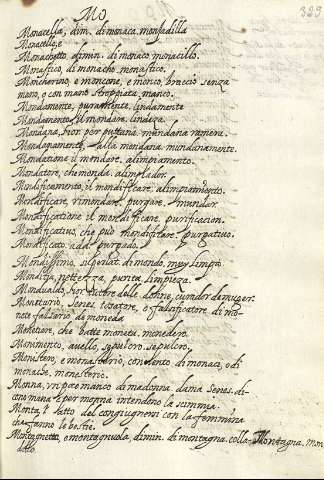 Mo
329
Monacella, dim. di monaca. monjadilla
Monacello, e
Monachetto, dimin. di monaco. monacillo.
Monastico, di monacho monastico.
Moncherino, e moncone, e monco, braccio senza
mano, o con mano stroppiata, manco.
Mondamente, puramente. lindamente
Mondamento, il mondare. lindeza.
Mondana, bior per puttana mundana ramera.
Mondanamente, alla mondana mundanamente.
Mondatione il mondare. alimpiamento.
Mondatore, che monda. alimpiador.
Mondificamento, il mondificare. alimpiamiento.
Mondificare, rimondare, purgare, mundar.
Mondificatione il mondificare. purificacion.
Mondificativo, che può mondificare. purgativo.
Mondificato. add. purgado.
Mondissimo, superlat. di mondo, muy limpio
Mondizia nettezza, purita, limpieza.
Monoualdo, bior. tutore delle donne, curador de muger.
Monetario, Senes. tosatore, o falsificatore di mo-
nete falsario de moneda
Monetiere, che batte moneta. monedero.
Monimento, auello, sepulcro. sepulcro.
Monistero, e monasterio, convento di monaci, o di
monache, monesterio.
Monna, un parte manco di madonna. dama Senes. di-
cono mona e per monna intendono la scimmia.
Monta, l' hatto del congiugnersi con la femmina
che fanno le bestie.
Montagnetta, e montagnuola, dimin. di montagna. colla. Montagna. mon